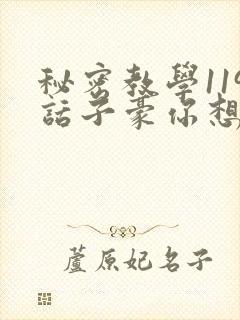 秘密教學119
話子豪你想
蘆原妃名子